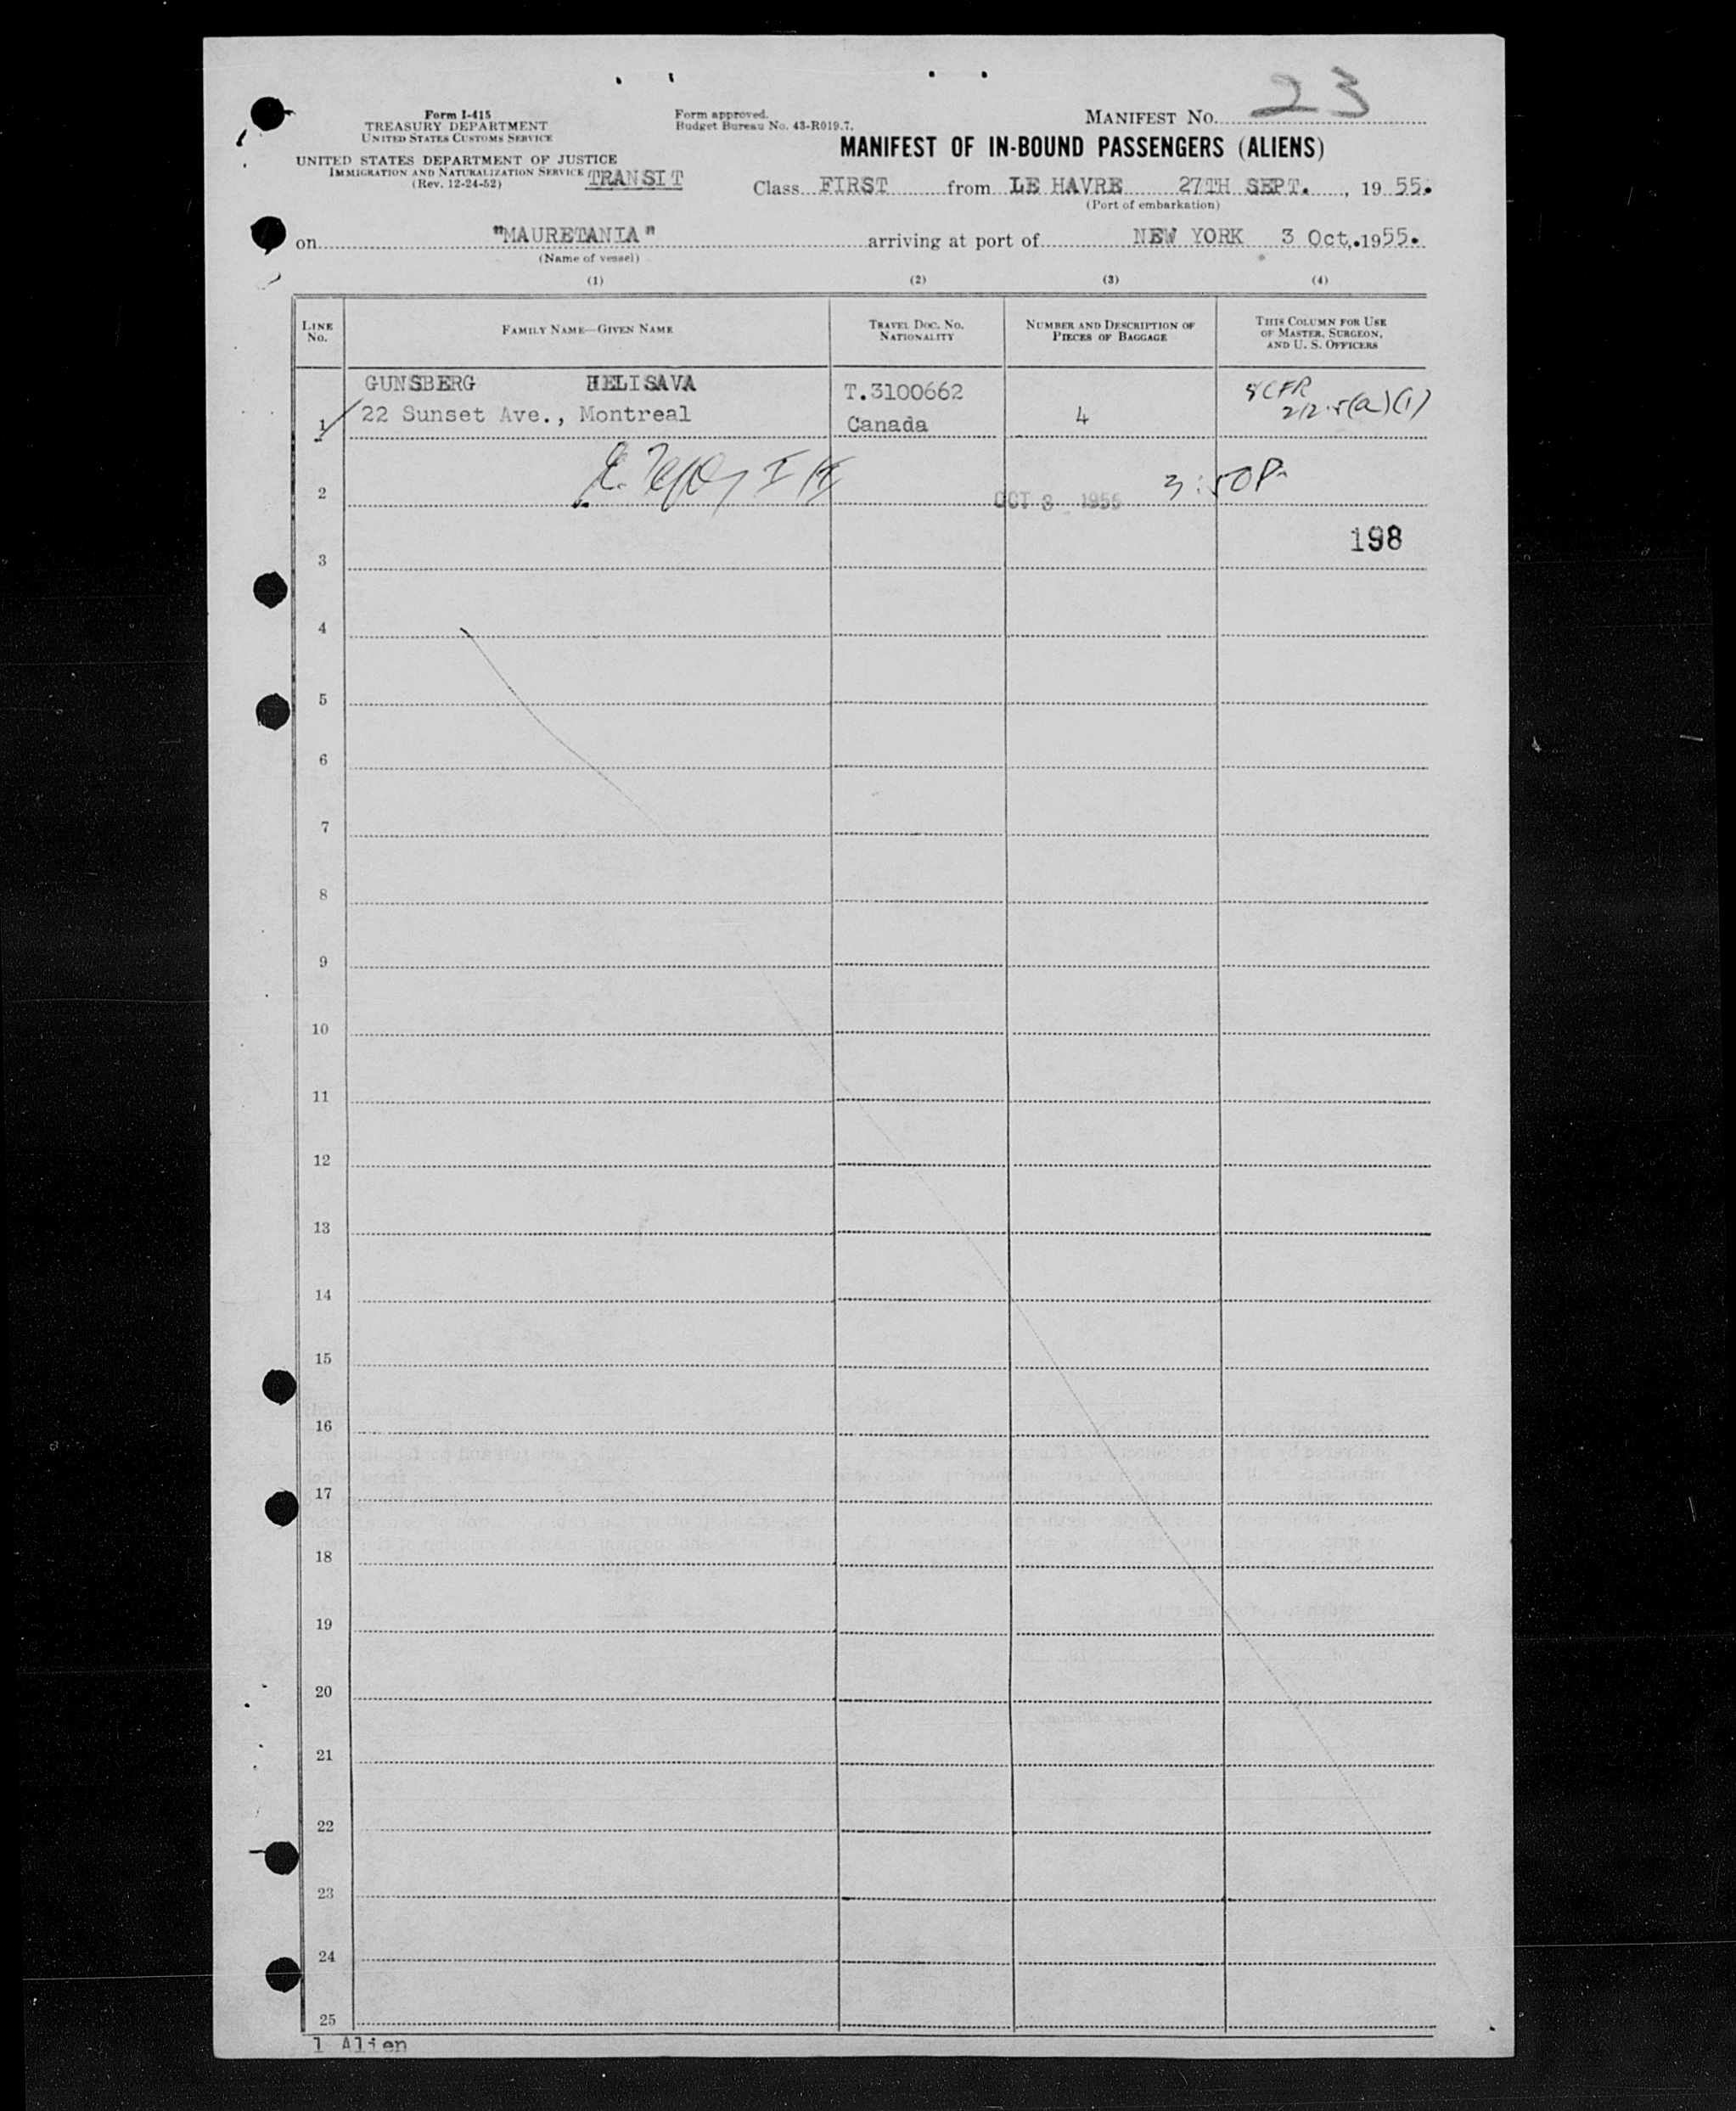 23
Form I-415
TREASURY DEPARTMENT
UNITED STATES CUSTOMS SERVICE
UNITED STATES DEPARTMENT OF JUSTICE
IMMIGRATION AND NATURALIZATION SERVICE TRANSIT
(Rev. 12-24-52)
Form approved.
Budget Bureau No. 43-R019.7.
MANIFEST NO.
MANIFEST OF IN-BOUND PASSENGERS (ALIENS)
Class FIRST from LE HAVRE 27TH SEPT., 1955.
(Port of embarkation)
on "MAURETANIA" arriving at port of NEW YORK 3 Oct,.1955.
(Name of vessel)
(1) (2) (3) (4)
LINE NO.
FAMILY NAME—GIVEN NAME
TRAVEL DOC. NO.
NATIONALITY
NUMBER AND DESCRIPTION OF
PIECES OF BAGGAGE
THIS COLUMN FOR USE
OF MASTER, SURGEON,
AND U. S. OFFICERS
GUNSBERG HELISAVA
22 Sunset Ave., Montreal
T.3100662
Canada
4
8 CFR
212.5(a)(1)
1
2
OCT 3 1955
3:50P
198
3
4
5
6
7
8
9
10
11
12
13
14
15
16
17
18
19
20
21
22
23
24
25
1 Alien